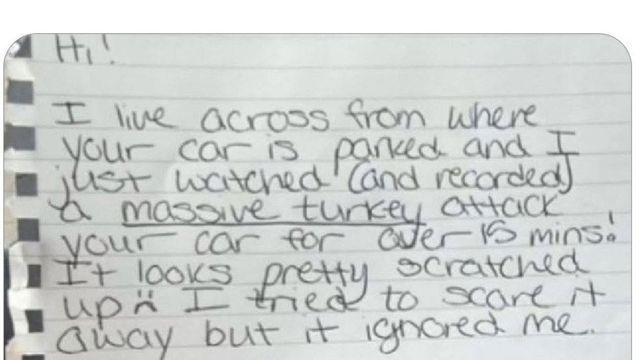 Hi!
I live across from where
your car is parked and I
just watched (and recorded)
a massive turkey attack
your car for over 15 mins!
It looks pretty scratched
up :( I tried to scare it
away but it ignored me.